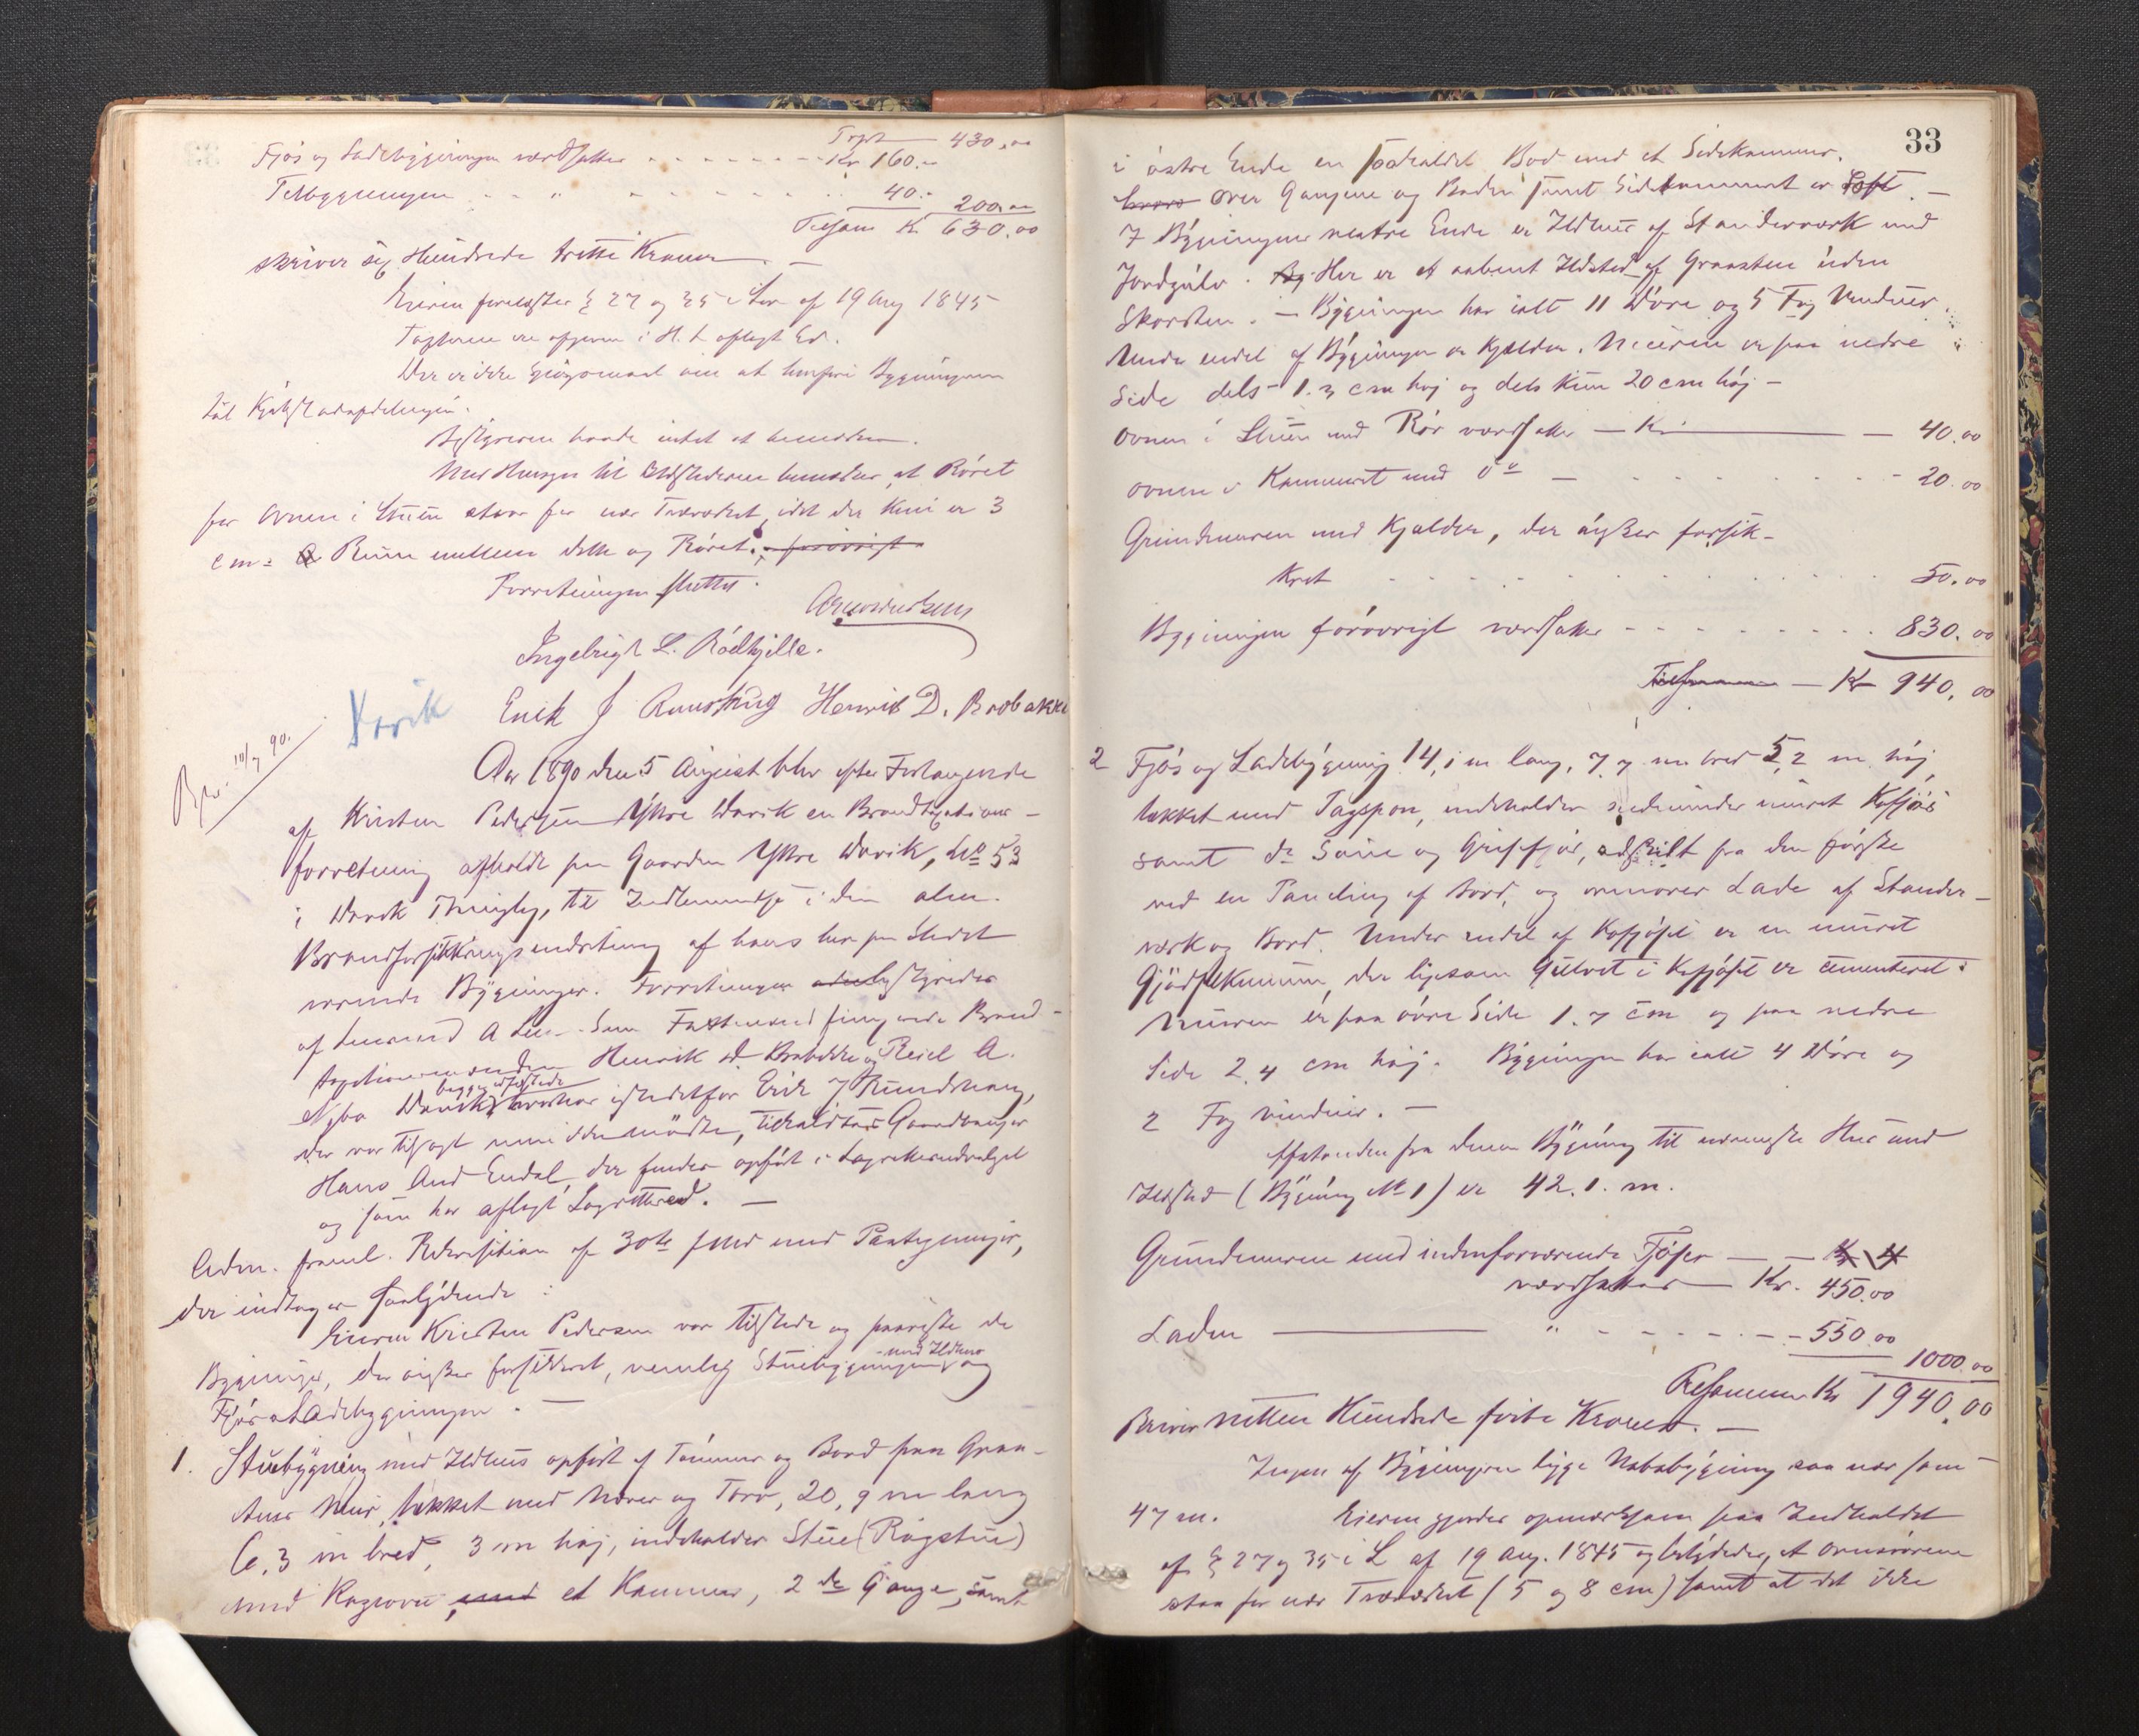 Trpt 430,00
Fjös og Ladebygningen værdsattes - - - - Kr 160.-
Tilbygningen - - " - - - - 40.- 200.00
Tilsam Kr 630.00
skriver sex Hundrede tretti Kroner. —
Eieren forelæstes § 27 og 35 i Lov af 19 Aug 1845
Taxterne ere afgivne i H. t. aflagt Ed.
Der er ikke Spörgsmaal om at henföre Bygningerne
til Kjöbstadafdelingen.
Bestyreren havde intet at bemærke.
Med Hensyn til Ildstederne bemærkes, at Röret
for Ovnen i Stuen staar for nær Træværket, idet der kun er 3
cm. Rum mellem dette og Röret. forövrigt
Forretningen sluttet.
Ingebrigt L. Rödhjille.
Erick J Rundhaug Henrik D. Brobakke
Dovik
Bpr. 10/7 90.
Aar 1890 den 5 August blev efter Forlangende
af Kristen Pedersen Yttre Dovik en Brandtaxations-
forretning afholdt paa Gaarden Yttre Dovik, No 53
i Dovik Thinglag, til Indlemmelse i den alm.
Brandforsikringsindretning af hans her paa Stedet
værende Bygninger. Forretningen bestyredes
af Lensmand A Lee. Som Taxtmænd fungerede Brand-
taxtionsmændene Henrik D. Brobakke og Reiel A.
Nybö Dovik, begge edfæstede istedetfor Erik J Rundhaug,
der var tilsagt men ikke mödte, tilkaldtes Gaardbruger
Hans And Endal, der findes opfört i Lagretteudvalget
og som har aflagt Lagretteed. —
Adm. freml. Rekvisition af 30te f Md med Paategninger,
der indtages saalydende:
Eieren Kristen Pedersen var tilstede og paaviste de
Bygninger, der önskes forsikret, nemlig Stuebygningen med Ildhus og
Fjös & Ladebygningen. —
1. Stuebygning med Ildhus opfört af Tömmer og Bord paa Graa-
stens Mur, tækket med Næver og Torv, 20,9 m lang
6,3 m bred, 3 m höj, indeholder Stue (Rögstue)
med Kogeovn, med et Kammer, 2de Gange, samt
33
i östre Ende en saakaldet Bod med et Sidekammer.
hvoro over Gangene og Boden samt Sidekammeret er Loft. —
I Bygningens vestre Ende er Ildhus af Standerværk med
Jordgulv. Her er et aabent Ildsted af Graasten uden
Skorsten. — Bygningen har ialt 11 Döre og 5 Fag Vinduer.
Under endel af Bygningen er Kjælder. Muren er paa nedre
Side dels 1.3 cm höj og dels kun 20 cm höj —
Ovnen i Stuen med Rör værdsattes — Kr — 40.00
Ovnen i Kammeret med do — - - - 20.00
Grundmuren med Kjælder, der önskes forsik-
kret - - - - 50.00
Bygningen forövrigt værdsattes - - - - 830.00
Tilsammen — Kr 940,00
2 Fjös og Ladebygning 14,1 m lang, 7,7 m bred 5,2 m. höj,
tækket med Tagspon, indeholder nedenunder muret Kofjös
samt do Saue og Grisefjös, adskilt fra den förste
ved en Paneling af Bord, og ovenover Lade af Stander-
værk og Bord. Under endel af Kofjöset er en muret
Gjödselkum, der ligesom Gulvet i Kofjöset er cementeret.
Muren er paa övre Side 1.7 cm og paa nedre
Side 2.4 cm höj. Bygningen har ialt 4 Döre og
2 Fag Vinduer. —
Afstanden fra denne Bygning til nærmeste Hus med
Ildsted (Bygning No 1) er 42.1. m.
Grundmuren med indenforværende Fjöser — — Kr 4
værdsattes — Kr. 450.00
Laden — " - - - - 550.00
1000.00
Tilsammen Kr 1940.00
skriver nitten Hundrede förti Kroner. —
Ingen af Bygningerne ligge Nabobygning saa nær som
47 m. Eieren gjordes opmærksom paa Indholdet
af § 27 og 35 i L af 19 Aug. 1845 og betydedes, at Ovnsrörene
staa for nær Træværket (5 og 8 cm) samt at det ikke